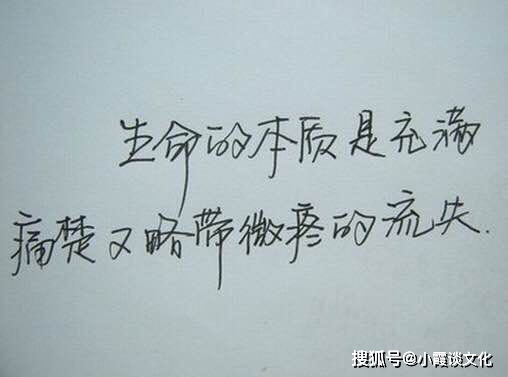 生命的本质是充满
痛楚又略带微疼的流失.
搜狐号@小霞谈文化